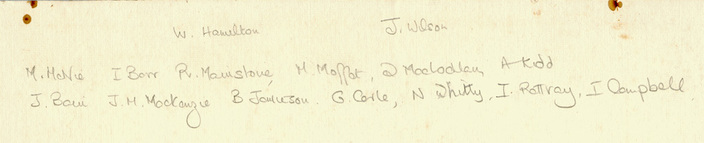 W. Hamilton J. Wilson
M. McNie I Barr R. Mainstone, M. Moffat, D Maclachlan, A Kidd
J. Bain J. M. Mackenzie B Jamieson. G. Carle, N Whitty, I. Rottray, I Campbell